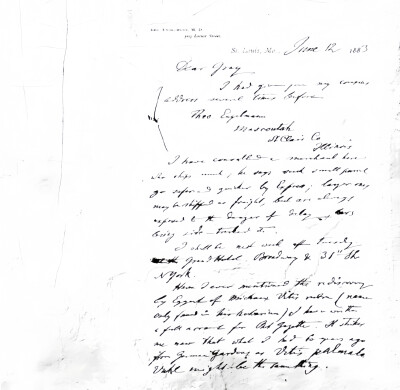 St. Louis, Mo. June 12, 1883
Dear Gray
I had given you my cousin's
address several times before
Theo Engelmann
Mascoutah
St Clair Co
Illinois
I have consulted a merchant here
who ships much, he says such small parcel
go safer & quicker by Express; larger ones
may be shipped as freight, but are always
exposed to the danger of delay,
being side-tracked &c.
I shall be next week
Grand Hotel, Broadway & 31st Str
N York.
Have I ever mentioned the rediscovery
by Eggert of Michaux Vitis rubra (name
only found in his herbarium) I have written
a full account for Bot Gazette. It strikes
me now that what I had 40 years ago
from German Gardens as Vitis palmata
Vahl might be the same thing.